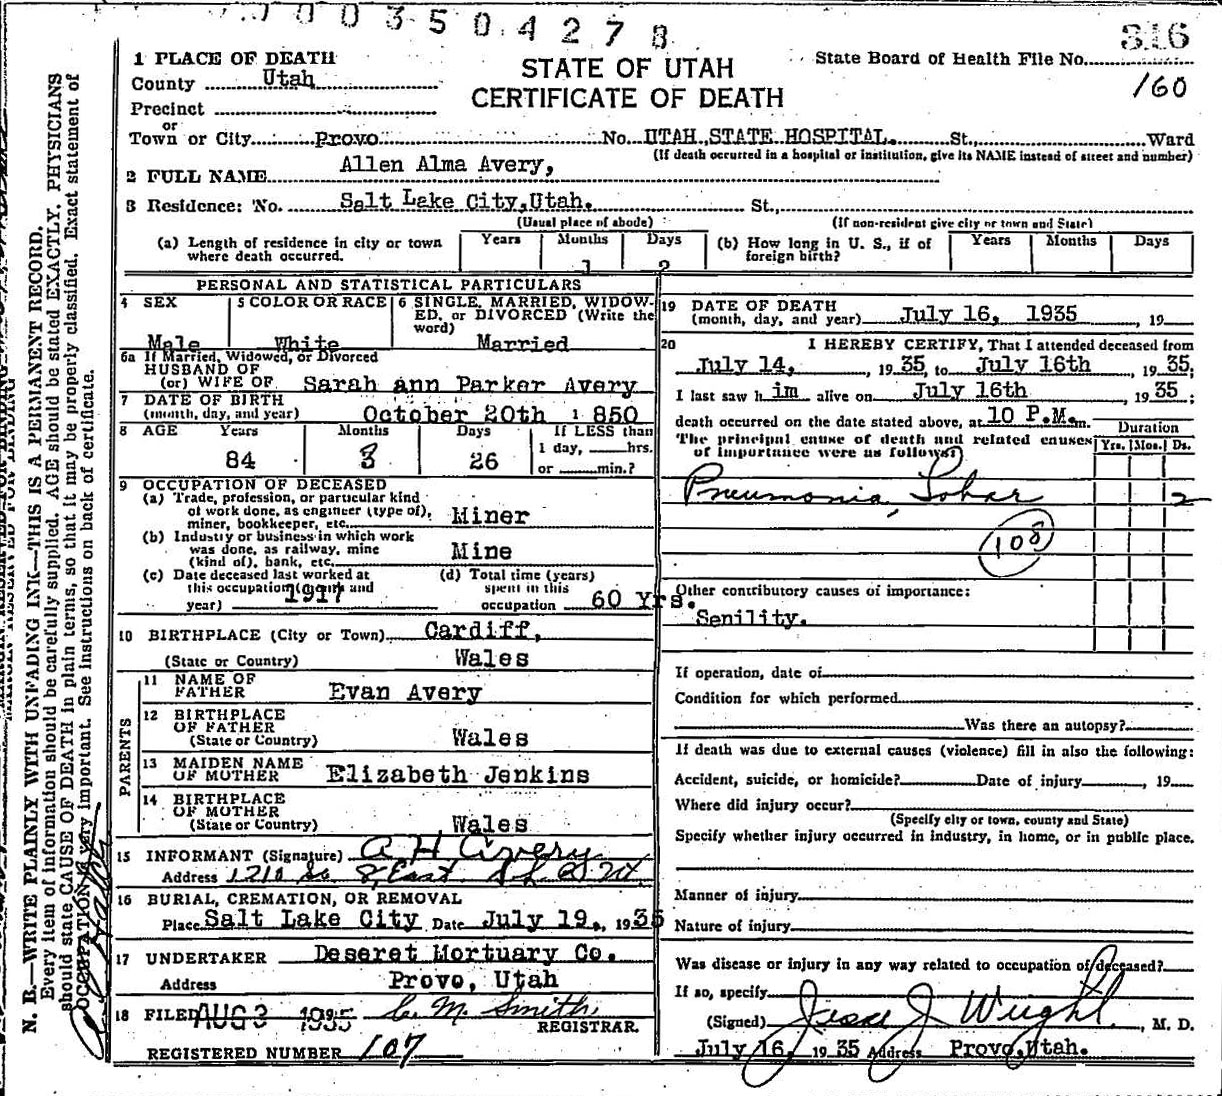 003504278
316
1 PLACE OF DEATH
County Utah
Precinct
or
Town or City Provo No. UTAH STATE HOSPITAL. St., Ward
(If death occurred in a hospital or institution, give its NAME instead of street and number)
STATE OF UTAH
CERTIFICATE OF DEATH
State Board of Health File No.
160
2 FULL NAME Allen Alma Avery,
3 Residence: No. Salt Lake City,Utah. St.,
(Usual place of abode) (If non-resident give city or town and State)
(a) Length of residence in city or town where death occurred. Years Months 1 Days 2
(b) How long in U. S., if of foreign birth? Years Months Days
PERSONAL AND STATISTICAL PARTICULARS
4 SEX Male
5 COLOR OR RACE White
6 SINGLE, MARRIED, WIDOWED, or DIVORCED (Write the word) Married
6a If Married, Widowed, or Divorced
HUSBAND OF
(or) WIFE OF Sarah ann Parker Avery
7 DATE OF BIRTH
(month, day, and year) October 20th 1850
8 AGE Years 84 Months 8 Days 26 If LESS than 1 day, hrs. or min.?
9 OCCUPATION OF DECEASED
(a) Trade, profession, or particular kind
of work done, as engineer (type of),
miner, bookkeeper, etc. Miner
(b) Industry or business in which work
was done, as railway, mine
(kind of), bank, etc. Mine
(c) Date deceased last worked at
this occupation (month and
year) 1917
(d) Total time (years)
spent in this
occupation 60 Yrs.
10 BIRTHPLACE (City or Town) Cardiff,
(State or Country) Wales
PARENTS
11 NAME OF
FATHER Evan Avery
12 BIRTHPLACE
OF FATHER
(State or Country) Wales
13 MAIDEN NAME
OF MOTHER Elizabeth Jenkins
14 BIRTHPLACE
OF MOTHER
(State or Country) Wales
15 INFORMANT (Signature) A H Avery
Address 1210 So 8 East S L C Ut
16 BURIAL, CREMATION, OR REMOVAL
Place Salt Lake City Date July 19., 1935
17 UNDERTAKER Deseret Mortuary Co.
Address Provo, Utah
18 FILED AUG 3 1935 C. M. Smith,
REGISTRAR.
REGISTERED NUMBER 107
19 DATE OF DEATH
(month, day, and year) July 16, 1935 , 19
20 I HEREBY CERTIFY, That I attended deceased from
July 14, , 1935, to July 16th , 1935;
I last saw him alive on July 16th , 1935;
death occurred on the date stated above, at 10 P.M. m.
The principal cause of death and related causes
of importance were as follows:
Duration
Yrs. Mos. Ds.
Pneumonia, Lobar 2
108
Other contributory causes of importance:
Senility.
If operation, date of
Condition for which performed
Was there an autopsy?
If death was due to external causes (violence) fill in also the following:
Accident, suicide, or homicide? Date of injury , 19
Where did injury occur?
(Specify city or town, county and State)
Specify whether injury occurred in industry, in home, or in public place.
Manner of injury
Nature of injury
Was disease or injury in any way related to occupation of deceased?
If so, specify
(Signed) Jesse J Weight , M. D.
July 16, 1935 Address Provo,Utah.
N. B.—WRITE PLAINLY WITH UNFADING INK—THIS IS A PERMANENT RECORD.
Every item of information should be carefully supplied. AGE should be stated EXACTLY. PHYSICIANS
should state CAUSE OF DEATH in plain terms, so that it may be properly classified. Exact statement of
OCCUPATION is very important. See instructions on back of certificate.